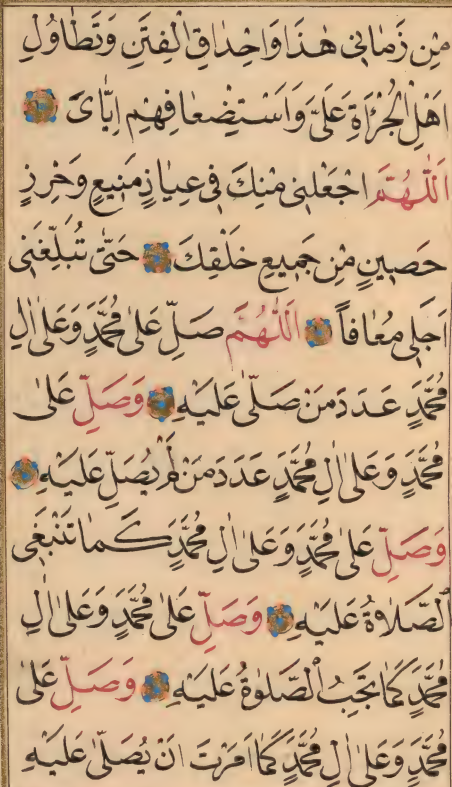 مِنْ زَمَانِي هٰذَا وَاِحْدَاقِ الْفِتَنِ وَتَطَاوُلِ
اَهْلِ الْجُرْاَةِ عَلَيَّ وَاسْتِضْعَافِهِمْ اِيَّايَ
اَللّٰهُمَّ اجْعَلْنِي مِنْكَ فِي عِيَاذٍ مَنِيعٍ وَحِرْزٍ
حَصِينٍ مِنْ جَمِيعِ خَلْقِكَ حَتّٰى تُبَلِّغَنِي
اَجَلِي مُعَافًا اَللّٰهُمَّ صَلِّ عَلٰى مُحَمَّدٍ وَعَلٰى اٰلِ
مُحَمَّدٍ عَدَدَ مَنْ صَلّٰى عَلَيْهِ وَصَلِّ عَلٰى
مُحَمَّدٍ وَعَلٰى اٰلِ مُحَمَّدٍ عَدَدَ مَنْ لَمْ يُصَلِّ عَلَيْهِ
وَصَلِّ عَلٰى مُحَمَّدٍ وَعَلٰى اٰلِ مُحَمَّدٍ كَمَا تَنْبَغِي
الْصَّلَاةُ عَلَيْهِ وَصَلِّ عَلٰى مُحَمَّدٍ وَعَلٰى اٰلِ
مُحَمَّدٍ كَمَا يَجِبُ الْصَّلٰوةُ عَلَيْهِ وَصَلِّ عَلٰى
مُحَمَّدٍ وَعَلٰى اٰلِ مُحَمَّدٍ كَمَا اَمَرْتَ اَنْ يُصَلّٰى عَلَيْهِ